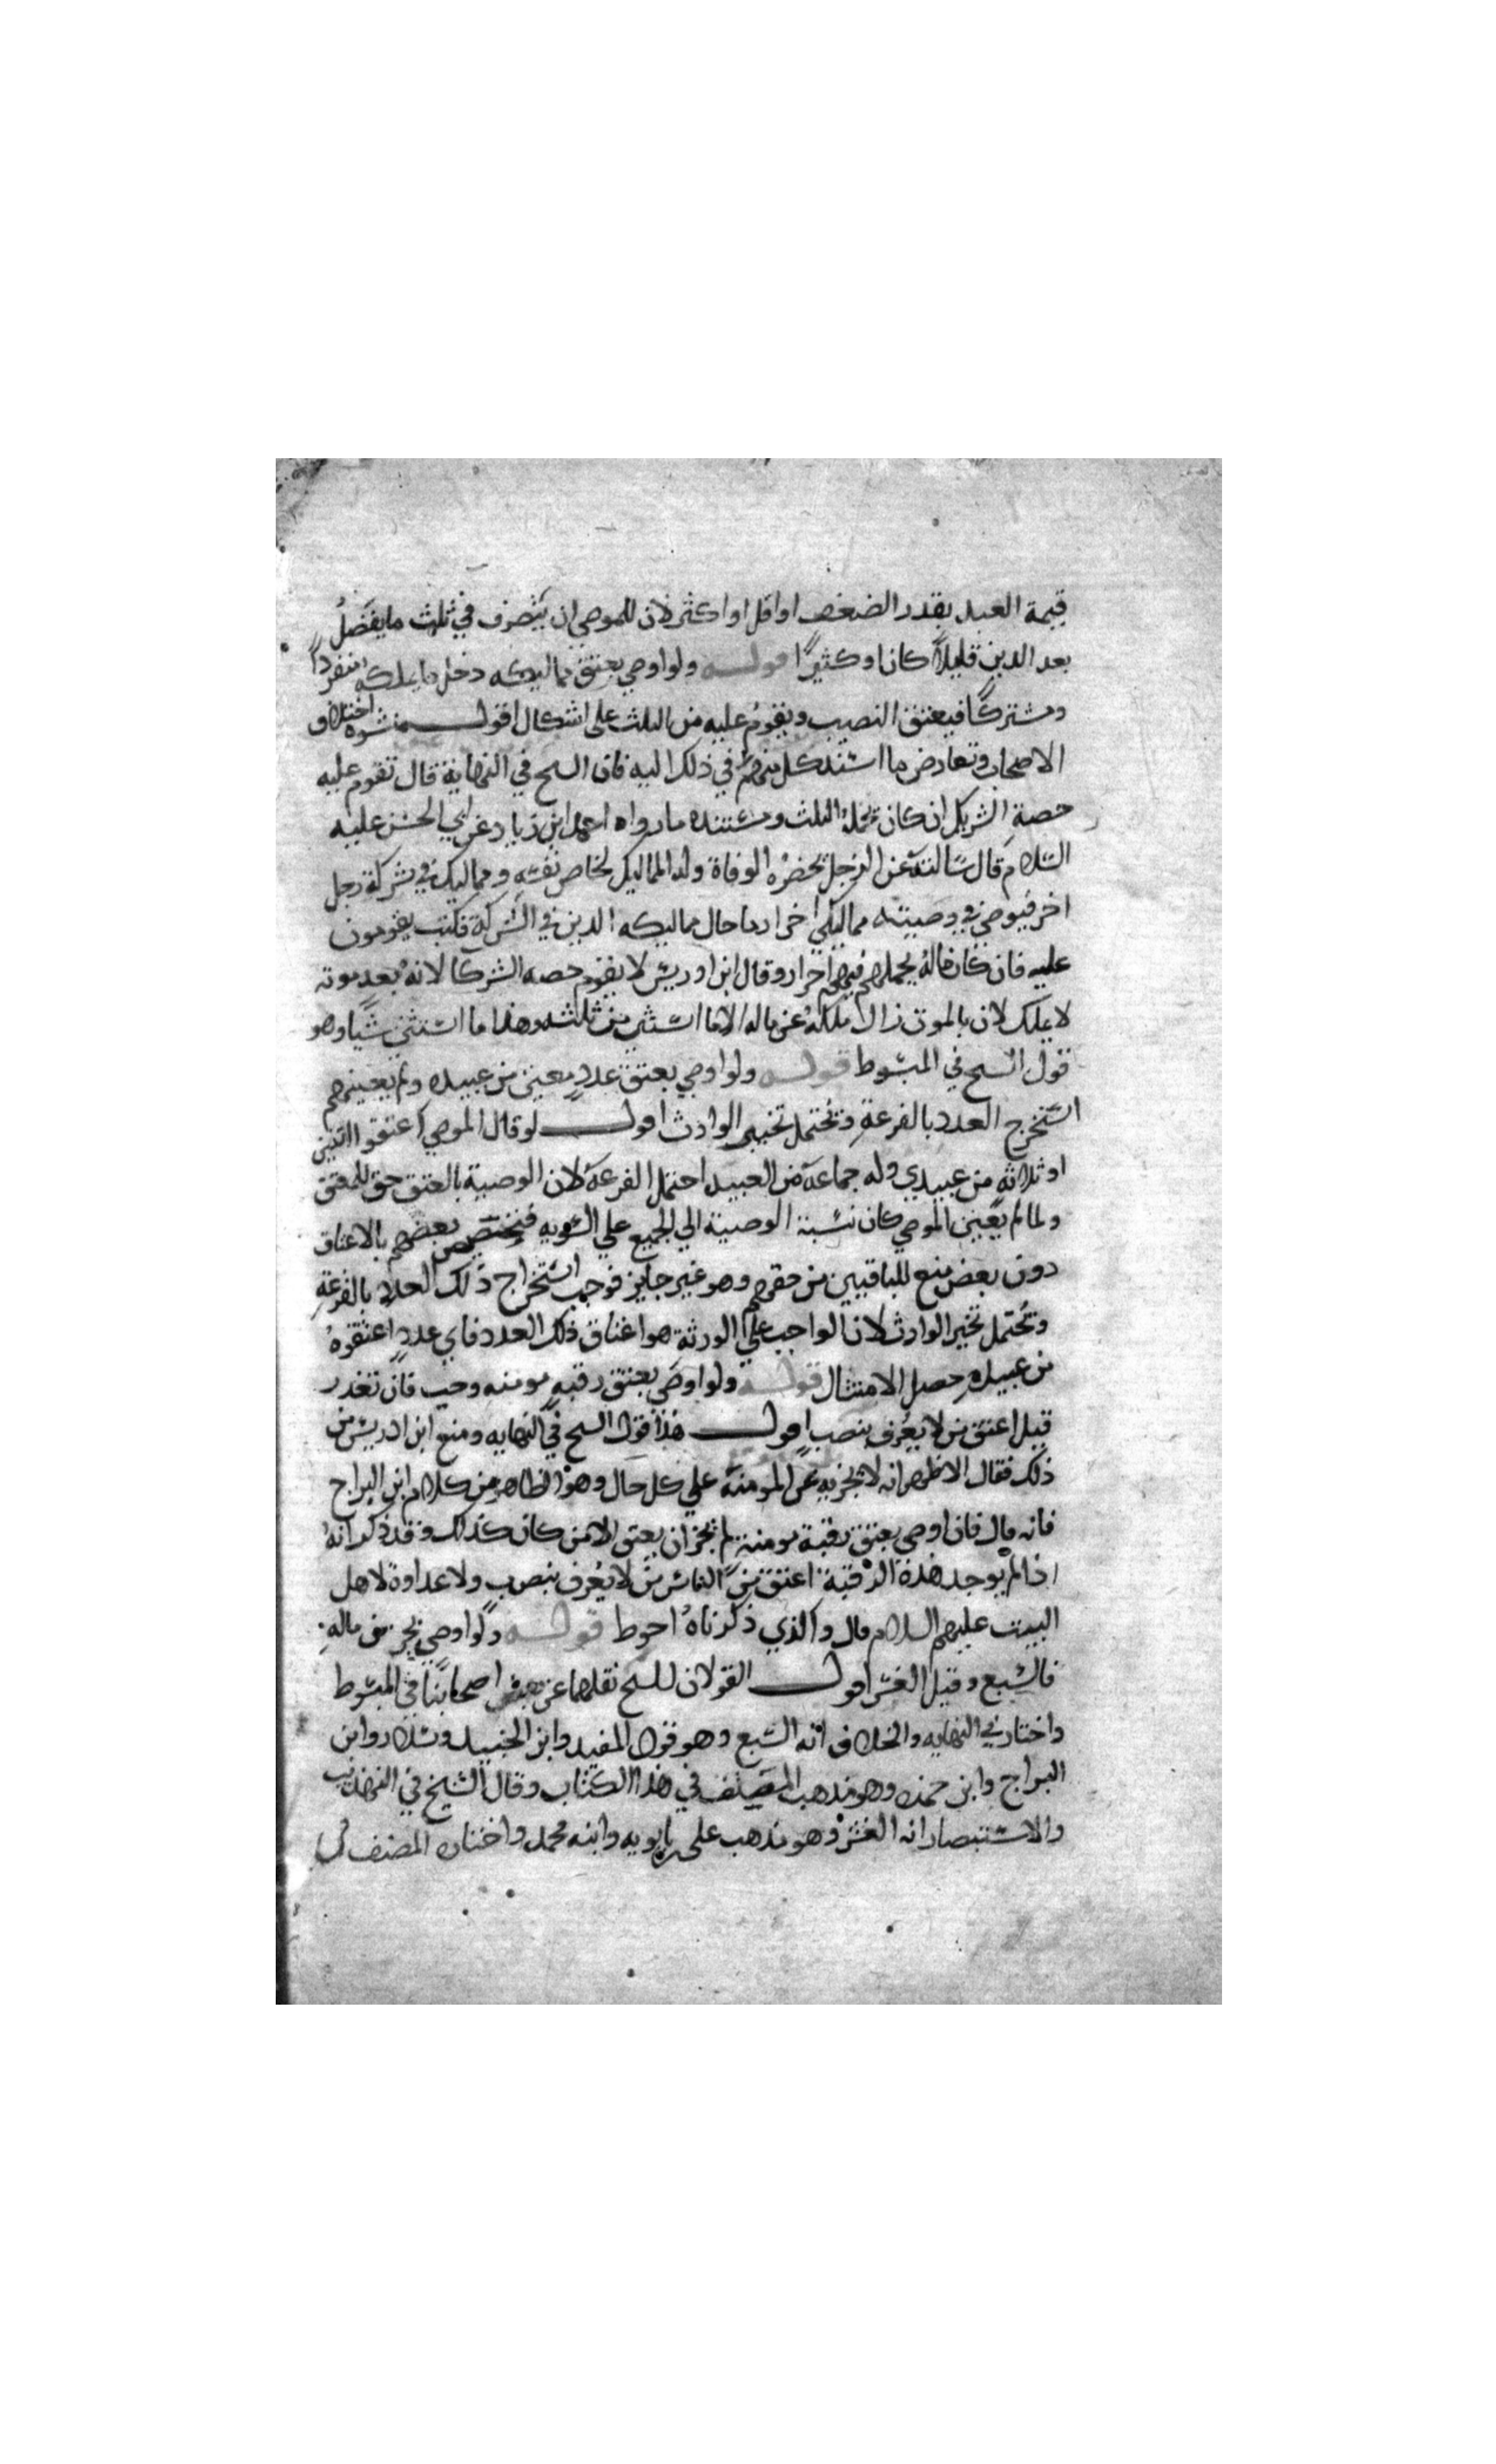 قيمة العبد بقدر الضعف او اقل او اكثر لان للموصي ان يتصرف في ثلث ما يفضل
بعد الدين قليلاً كان او كثيرًا قوله ولو اوصي بعتق مماليكه دخل ما يملكه منفردًا
ومشتركًا فيعتق النصيب ويقوم عليه من الثلث علي اشكال اقول منشوه اختلاف
الاصحاب وتعارض ما استند كل منهم في ذلك اليه فان الشيخ في النهاية قال تقوم عليه
حصة الشريك ان كان يحمله الثلث ومستنده ما رواه احمد ابن زياد عن ابي الحسن عليه
السلام قال سالته عن الرجل تحضره الوفاة وله المماليك لخاص نفسه ومماليك في شركة رجل
اخر فيوصي في وصيته مماليكي احرار ما حال مماليكه الذين في الشركة فكتب يقومون
عليه فان كان ماله يحملهم فهم احرار وقال ابن ادريس لا يقوم حصه الشركا لانه بعد موته
لا يملك لان بالموت زال ملكه عن ماله الا ما استثني من ثلثه وهذا ما استثني شيًا وهو
قول الشيخ في المبسوط قوله ولو اوصي بعتق عددٍ معين من عبيده ولم يعينهم
استخرج العدد بالقرعةِ ويُحتمل تخيير الوارث اقول لو قال الموصي اعتقوا اثنين
او ثلاثه من عبيدي وله جماعة من العبيد احتمل القرعة لان الوصية بالعتق حق للمعتق
ولما لم يعين الموصي كان نسبة الوصية الي الجميع علي السويه فتخصيص بعضهم بالاعتاق
دون بعض منع للباقيين من حقهم وهو غير جايز فوجب استخراج ذلك العدد بالقرعةِ
ويُحتمل تخير الوارث لان الواجب علي الورثة هو اعتاق ذلك العدد فاي عددٍ اعتقوهُ
من عبيدهِ حصل الامتثال قوله ولو اوصي بعتق رقبه مومنه وجب فان تعذر
قيل اعتق من لا يُعرف بنصب اقول هذا قول الشيخ في النهايه ومنع ابن ادريس من
ذلك فقال الاظهر انه لا يجزيه غير المومنة علي كل حال وهو الظاهر من كلام ابن البراج
فانه قال فان اوصي بعتق رقبة مومنة لم يجز ان يعتق الا من كان كذلك وقد ذكر انهُ
اذا لم يوجد هذه الرقبة اعتق من الناس من لا يُعرف بنصب ولا عداوة لاهل
البيت عليهم السلام قال والذي ذكرناهُ احوط قوله ولو اوصي بجز من ماله
فالسبع وقيل العشر اقول القولان للشيخ نقلهما عن بعض اصحابنا في المبسوط
واختار في النهايه والخلاف انه السبع وهو قول المفيد وابن الجنيد وسلار وابن
البراج وابن حمزه وهو مذهب المصنف في هذا الكتاب وقال الشيخ في التهذيب
والاستبصار انه العشر وهو مذهب علي بن بابويه وابنه محمد واختاره المصنف في